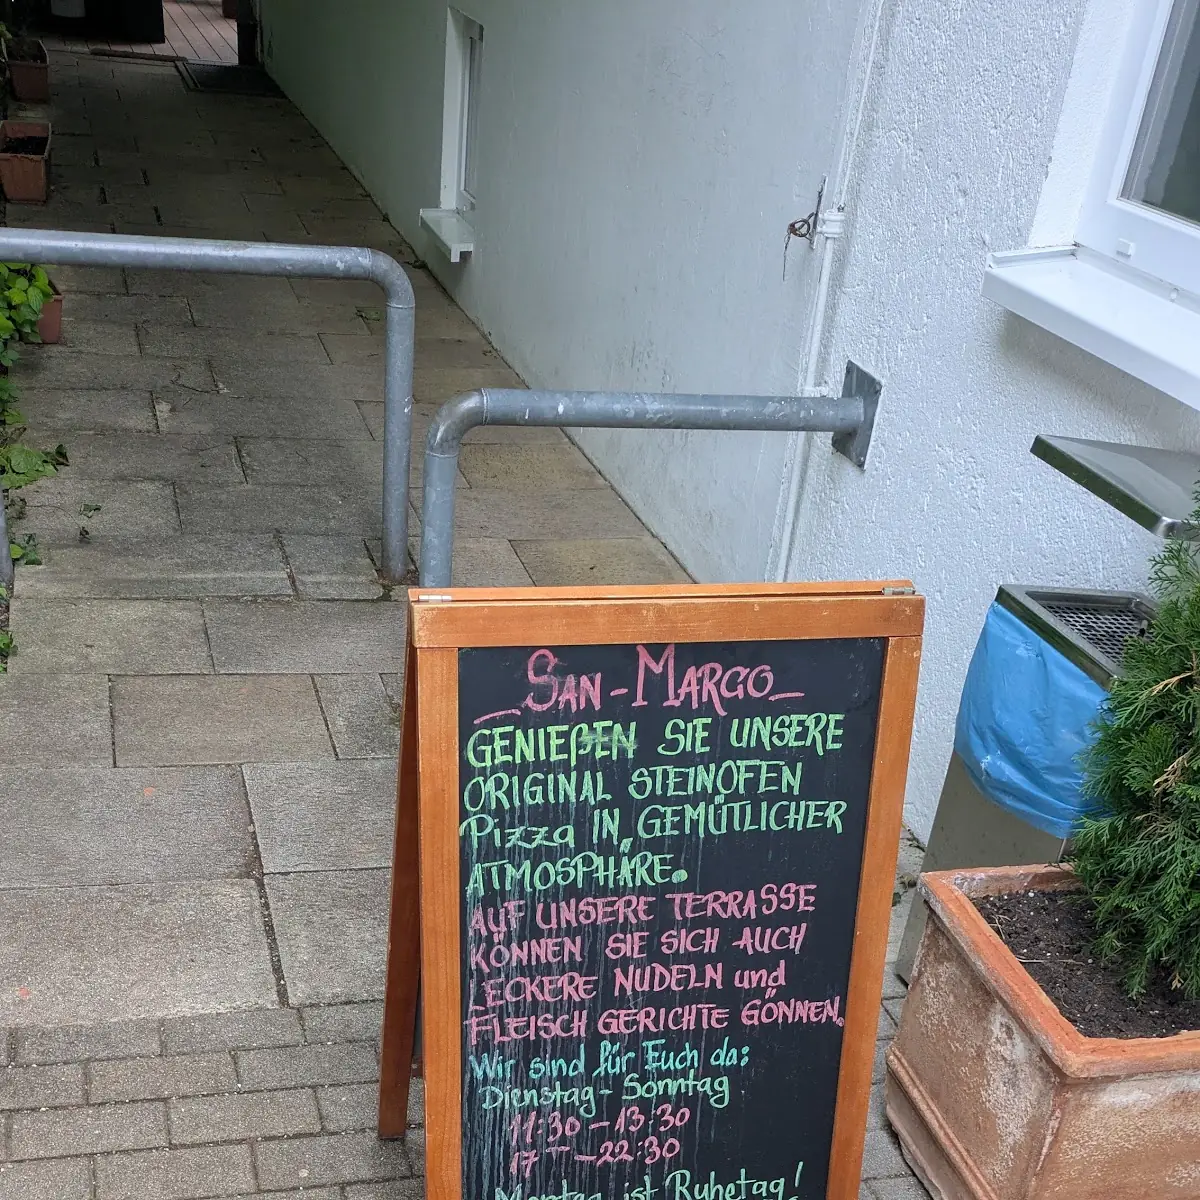 _SAN-MARCO_
GENIEßEN SIE UNSERE
ORIGINAL STEINOFEN
Pizza IN GEMÜTLICHER
ATMOSPHÄRE.
AUF UNSERE TERRASSE
KÖNNEN SIE SICH AUCH
LECKERE NUDELN und
FLEISCH GERICHTE GÖNNEN.
Wir sind für Euch da:
Dienstag-Sonntag
11:30-13:30
17 -- -22:30
Montag ist Ruhetag!